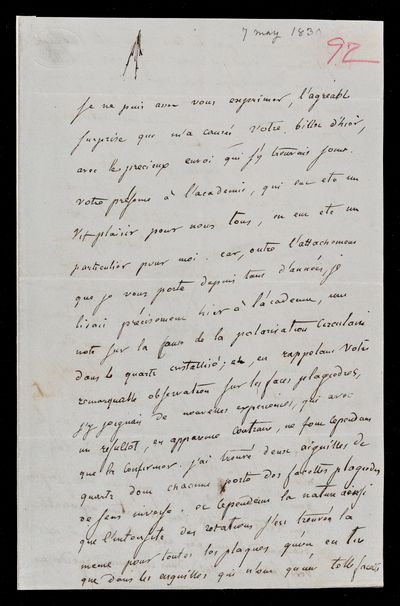 7 may 183
92
Je ne puis assez vous exprimer, l'agréable
surprise que m'a causée votre billet d'hier,
avec le précieux envoi qui s'y trouvait joint.
votre présence à l'academie, qui eut eté un
vif plaisir pour nous tous, en eut eté un
particulier pour moi. car, outre l'attachement
que je vous porte depuis tant d'années, je
lisais précisément hier à l'académie, une
note sur la cause de la polarisation circulaire
dans le quartz cristallisé; et, en rappelant votre
remarquable observation sur les faces plagiedres,
j'y joignais de nouvelles expériences, qui avec
un résultat, en apparence contraire, ne font cependant
que la confirmer. j'ai trouvé deux aiguilles de
quartz dont chacune porte des facettes plagiedres
de sens inverse. et cependant la nature ainsi
que l'intensité des rotations s'est trouvée la
même pour toutes les plaques qu'on en tire
que dans les aiguilles qui n'ont qu'une